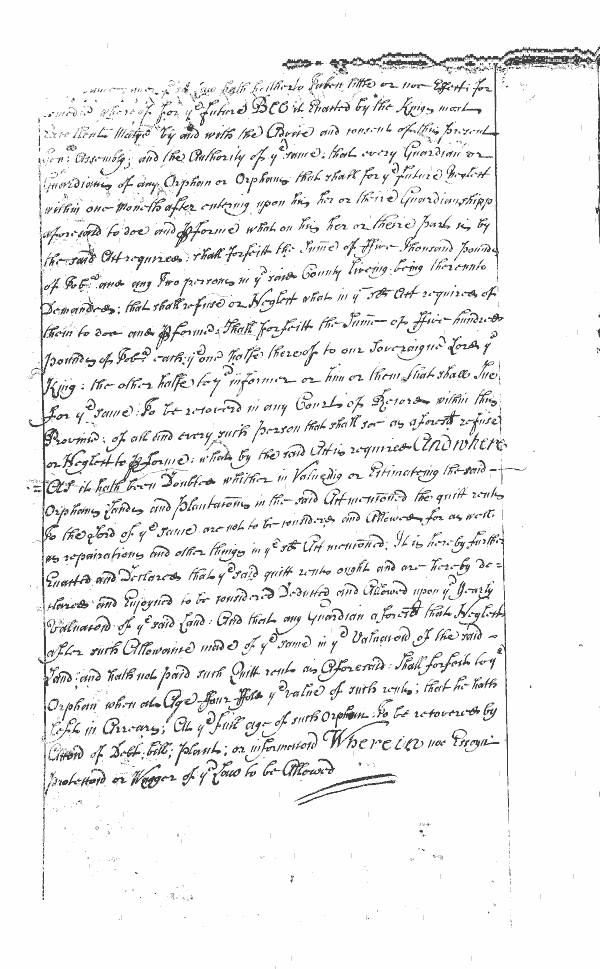 Law hath hitherto taken little or noe Effect; for
remedie whereof for yᵉ future BEE it Enacted by the Kings most
Excellent Matyᵉ by and with the Advice and consent of this present
Genᵉ. Assembly; and the Authority of yᵉ same; that every Guardian or
Guardians of any Orphan or Orphans that shall for yᵉ future Neglect
within one Moneth after entering upon his her or theire Guardianshipp
aforesaid to doe and pforme what on his her or theire parts is by
the said Act required; shall forfeitt the Sume of ffive Thousand pounds
of Tobᵒ. and any Two persons in yᵉ said County liveing being thereunto
Demanded; that shall refuse or Neglect what in yᵉ sᵈ Act required of
them to doe and pforme; shall forfeitt the Sume of ffive hundred
pounds of Tobᵒ. each; yᵉ one halfe thereof to our Soveraigne Lord yᵉ
King: the other halfe to yᵉ informer or him or them that shall Sue
for yᵉ same: To be recoverd in any Courts of Record within this
Province; of all and every such person that shall soe as aforesᵈ refuse
or Neglect to pforme: what by the said Act is required And where
As it hath been Doubted whither in Valueing or Estimateing the said
Orphans Lands and plantations in the said Act mentioned the quitt rents
To the Lord of yᵉ same are not to be considered and Allowed for as well
as repairations and other things in yᵉ sᵈ Act mentioned; It is hereby further
Enacted and Declared that yᵉ said quitt rents ought and are hereby de=
clared and Enjoyned to be considered Deducted and Allowed upon yᵉ Yearly
Valuation of yᵉ said Land: And that any Guardian aforesᵈ that Neglect
after such Allowance made of yᵉ same in yᵉ Valuation of the said
Land; and hath not paid such Quitt rents as Aforesaid: Shall forfeit to yᵉ
Orphan when att Age ffour ffold yᵉ value of such rents; that he hath
left in Arrears; At yᵉ full age of such Orphan: To be recovered by
Action of Debt: bill; plaint; or information Wherein noe Essoyn
Protection or Wager of yᵉ Law to be Allowed